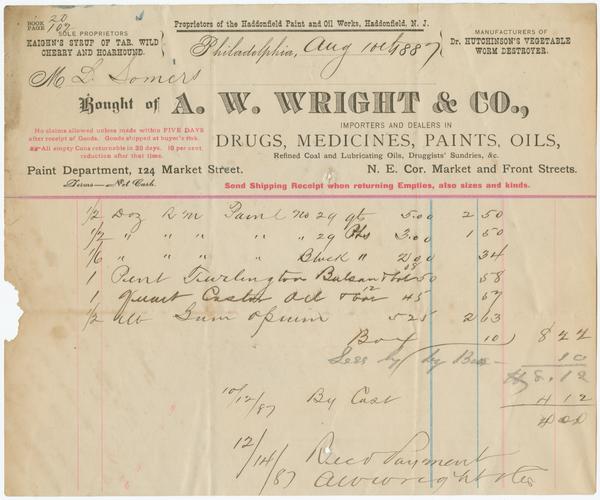 BOOK 20
PAGE 107
Proprietors of the Haddonfield Paint and Oil Works, Haddonfield, N. J.
SOLE PROPRIETORS
KAIGHN'S SYRUP OF TAR, WILD
CHERRY AND HOARHOUND.
Philadelphia, Aug 10th 1887
MANUFACTURERS OF
Dr. HUTCHINSON'S VEGETABLE
WORM DESTROYER.
M L. Somers
Bought of A. W. WRIGHT & CO.,
IMPORTERS AND DEALERS IN
DRUGS, MEDICINES, PAINTS, OILS,
Refined Coal and Lubricating Oils, Druggists' Sundries, &c.
No claims allowed unless made within FIVE DAYS
after receipt of Goods. Goods shipped at buyer's risk.
All empty Cans returnable in 30 days. 10 per cent.
reduction after that time.
Paint Department, 124 Market Street.
N. E. Cor. Market and Front Streets.
Terms—Net Cash.
Send Shipping Receipt when returning Empties, also sizes and kinds.
1/2 Doz R M Paint No 29 qts 5.00 2 50
1/2 " " " " " 29 Pts 3.00 1 50
1/6 " " " Black " 2.00 34
1 Pint Turlington Balsam & bot 08 50 58
1 Quart Castor Oil & bot 12 45 57
1/2 lb Gum Opium 525 2 63
Box 10 8 22
Less by Box 10
8.12
10/12/87 By Cash 4 12
4 00
12/14/87 Recd Payment
A W Wright & Co